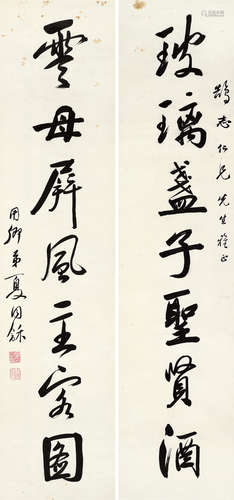 鹄志仁兄先生雅正
玻璃盏子圣贤酒
云母屏风主客图
用卿弟夏同龢